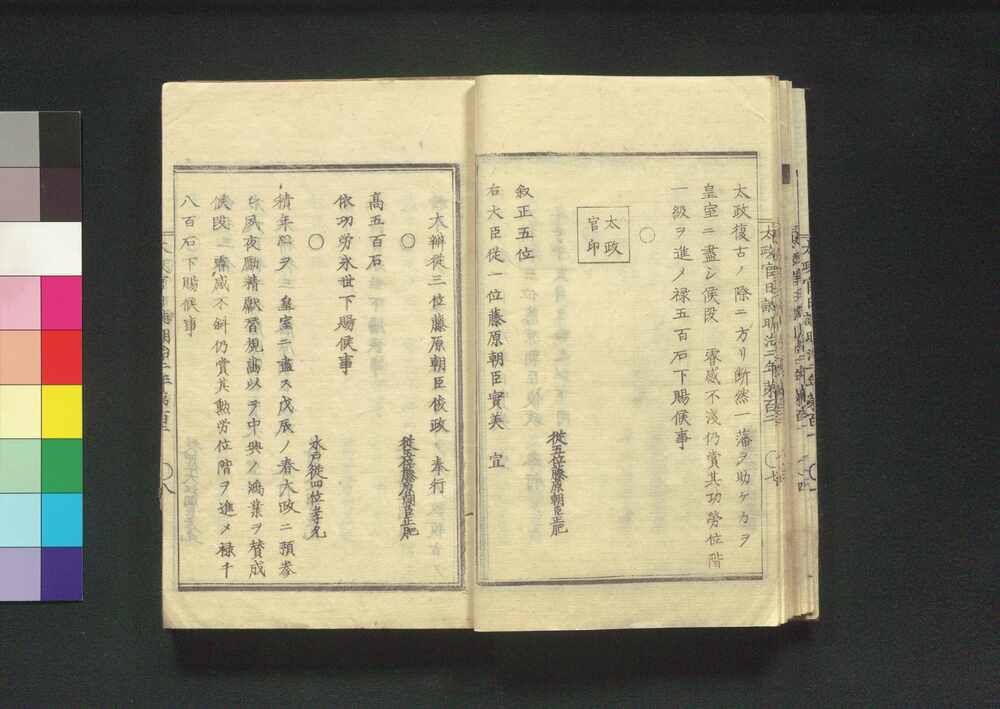 太政復古ノ際ニ方リ断然一藩ヲ助ケ力ヲ
皇室ニ盡シ候段　叡感不浅仍賞其功勞位階
一級ヲ進メ禄五百石下賜候事
○
太政
官印
從五位藤原朝臣正肥
叙正五位
右大臣從一位藤原朝臣實美　宣
大辨從三位藤原朝臣俊政　奉行
○
從五位藤原朝臣正肥
高五百石
依功労永世下賜候事
○
水戸從四位孝允
積年心ヲ　皇室ニ盡ス戊辰ノ春大政ニ預参
夙夜勵精獻替規畫以テ中興ノ鴻業ヲ賛成
候段　叡感不斜仍賞其勲労位階ヲ進メ禄千
八百石下賜候事
太政官日誌明治二年第百二
○七
○八